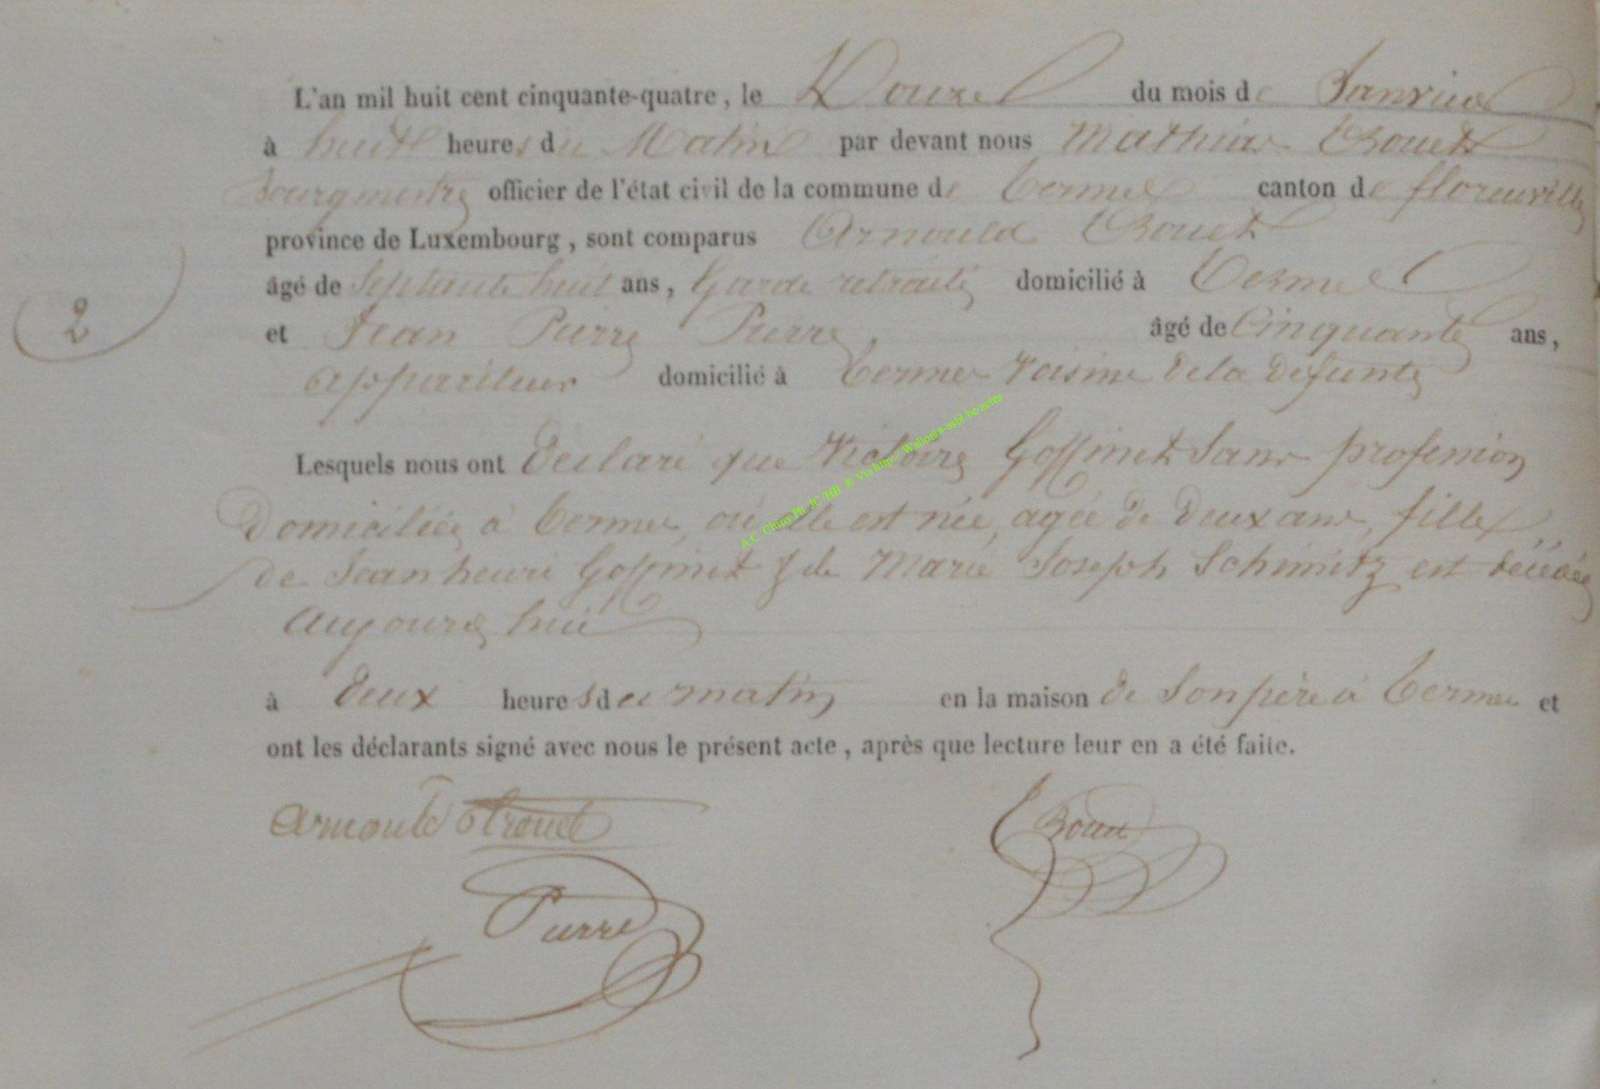 L'an mil huit cent cinquante-quatre, le Douze du mois de Janvier
à huit heures du Matin par devant nous Mathias
Bourgmestre officier de l'état civil de la commune de Termes canton de florenville
province de Luxembourg, sont comparus Arnould
âgé de Septante huit ans, Garde retraité domicilié à Termes
2 et Jean Pierre Pierre, âgé de Cinquante ans,
appariteur domicilié à Termes voisins de la defunte
Lesquels nous ont déclaré que Victoire Goffinet Sans profession
Domiciliée à Termes, où elle est née, agée de deux ans, fille
de Jean henri Goffinet & de Marie Joseph Schimitz est décédée
aujourd'hui
à deux heures du matin en la maison de Son père à Termes et
ont les déclarants signé avec nous le présent acte, après que lecture leur en a été faite.
Pierre